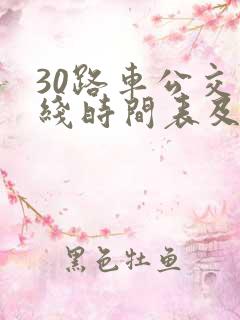 30路車公交
綫時間表及
黑色牡鱼